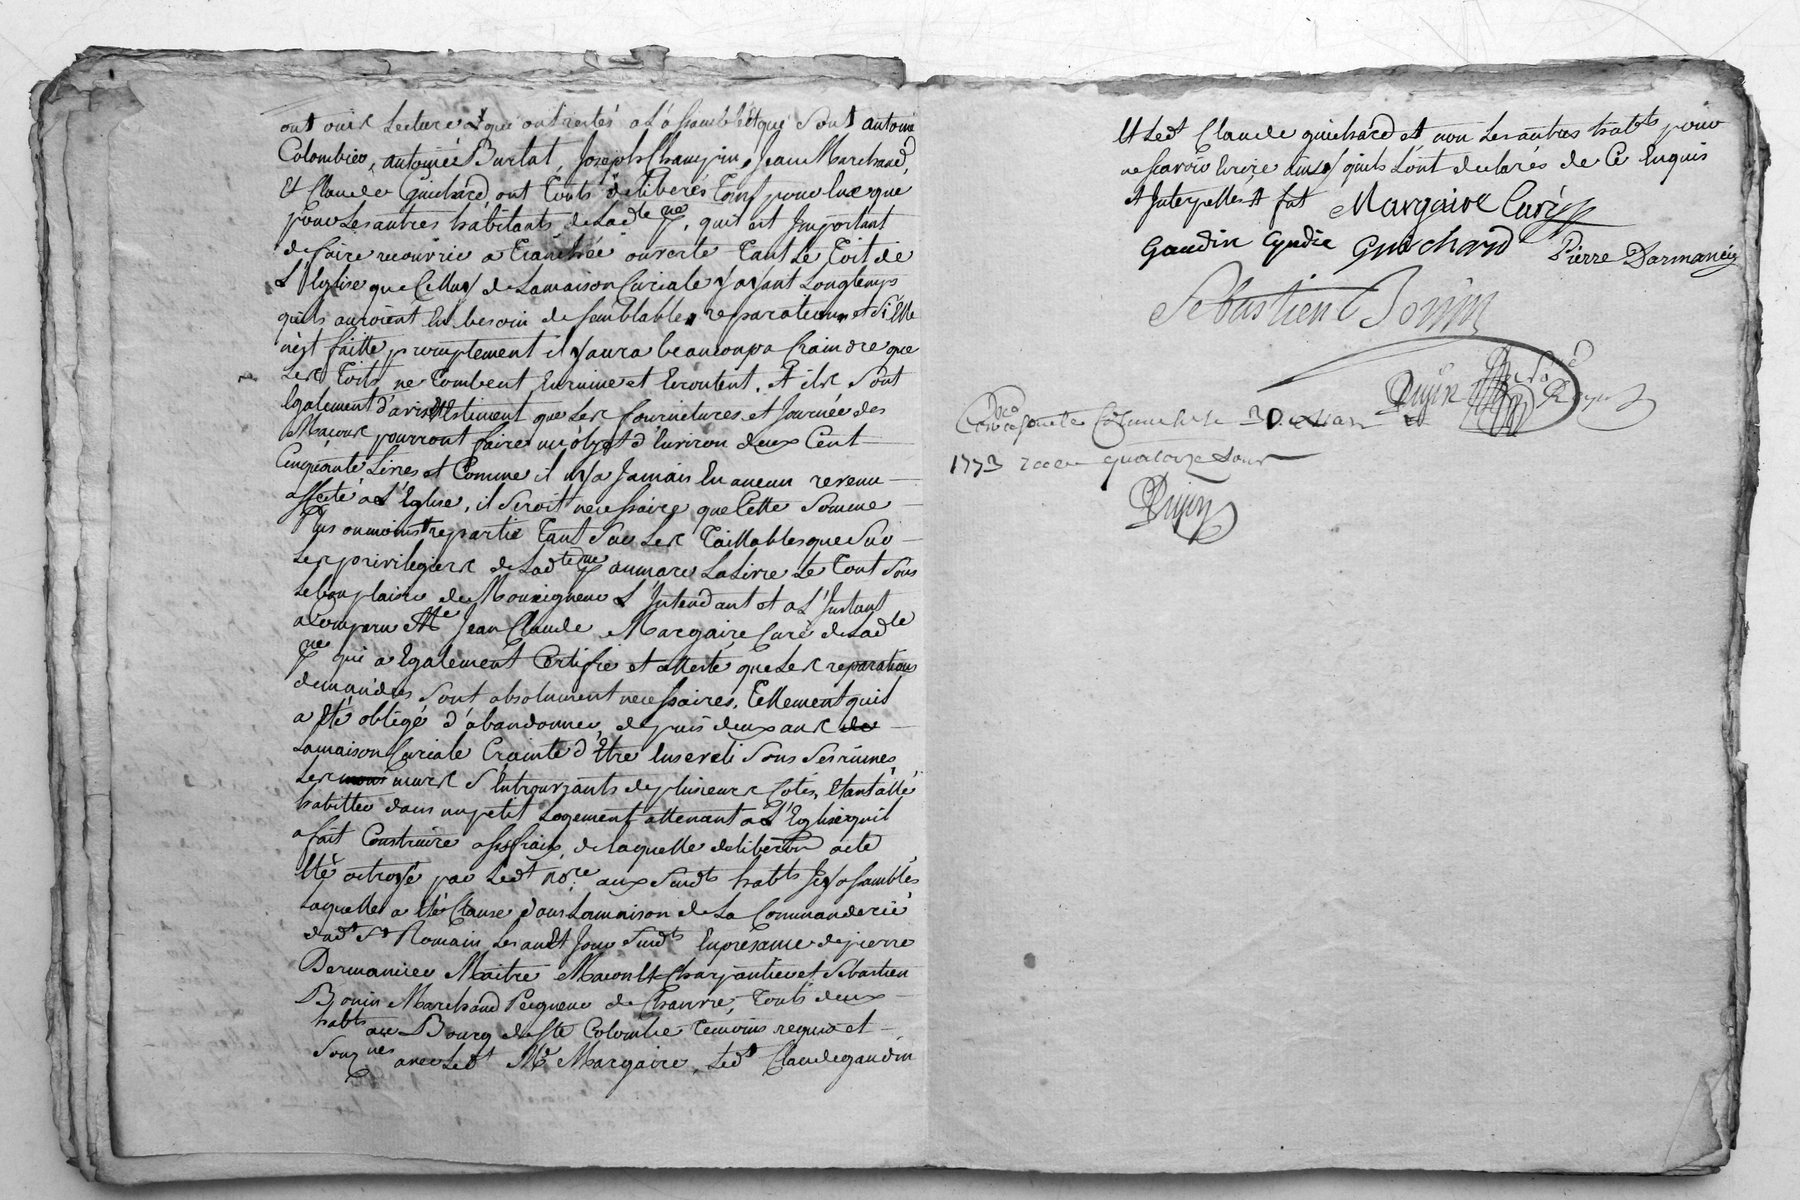 ont ouir Lecture et qui ont restés a L'assamblée que sont antoine
Colombier, antoine Burlat, Joseph Champrin, Jean Marchand,
Et Claude Guichard, ont touts deliberés tant pour Eux que
pour Les autres habitants de Lad.te p.sse, qu'il est Important
de faire recouvrir a tranchée ouverte tant Le toit de
L'Eglise que Celluy de La maison Curiale y ayant Longtemps
qu'ils auroient Eu besoin de semblables reparations et si Elle
n'est faitte promptement il y aura beaucoup a Craindre que
Les toits ne tombent En ruine et Ecroutent. Et ils sont
Egalement d'avis Et Estiment que Les fournitures et Journées des
Macons pourront faire un objet d'Environ deux Cent
Cinquante Livres et Comme il n'y a Jamais Eu aucun revenu
affecté a L'Eglise, il seroit necessaire que Cette somme
plus ou moins repartie tant sur Les taillables que sur
Les privilegiers de Lad.te p.sse au marc La Livre Le tout sous
Le bon plaisir de Monseigneur L'Intendant et a L'Instant
a Comparu M.re Jean Claude Margaire Curé de Lad.te
p.sse qui a Egalement Certifié et attesté que Les reparations
demandées sont absolument necessaires, tellement qu'il
a Eté obligé d'abandonner, depuis deux ans de
La maison Curiale Crainte d'Etre Enseveli sous ses ruines,
Les murs s'Entrouvrants de plusieurs Cotés, Etant allé
habitter dans un petit Logement attenant a L'Eglise qu'il
a fait Construire a ses fraix, de laquelle deliberon acte
Eté octroyé par Led.t no.re aux sud.ts hab.ts Icy assamblés
Laquelle a Eté Clause dans La maison de La Commanderie
dud.t S.t Romain Les an Et Jour sud.ts En presance de pierre
Dermancier Maitre Macon Et Charpantier et Sebastien
Bonin Marchand Peigneur de Chanvre, touts deux
hab.ts au Bourg de Ste Colombe temoins requis et
soug.nes avec Led.t M.e Margaire, Led.t Claude gaudin
Et Led.t Claude guichard et non Les autres hab.ts pour
ne scavoir Ecrire ainsy qu'ils L'ont declarés de Ce Enquis
Et Interpellés Et fut Margaire Curé
Gaudin Cyndic Guichard Pierre Darmancie
Sebastien Bonin
Dujin
1773 quatorze sous
Dujin